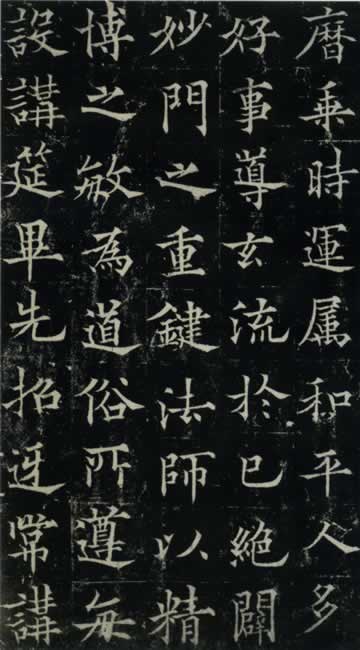 曆乘時運属和平人多
好事導玄流於已絕闢
妙門之重鍵法師以精
博之敏為道俗所遵每
設講筵畢先招迓常講